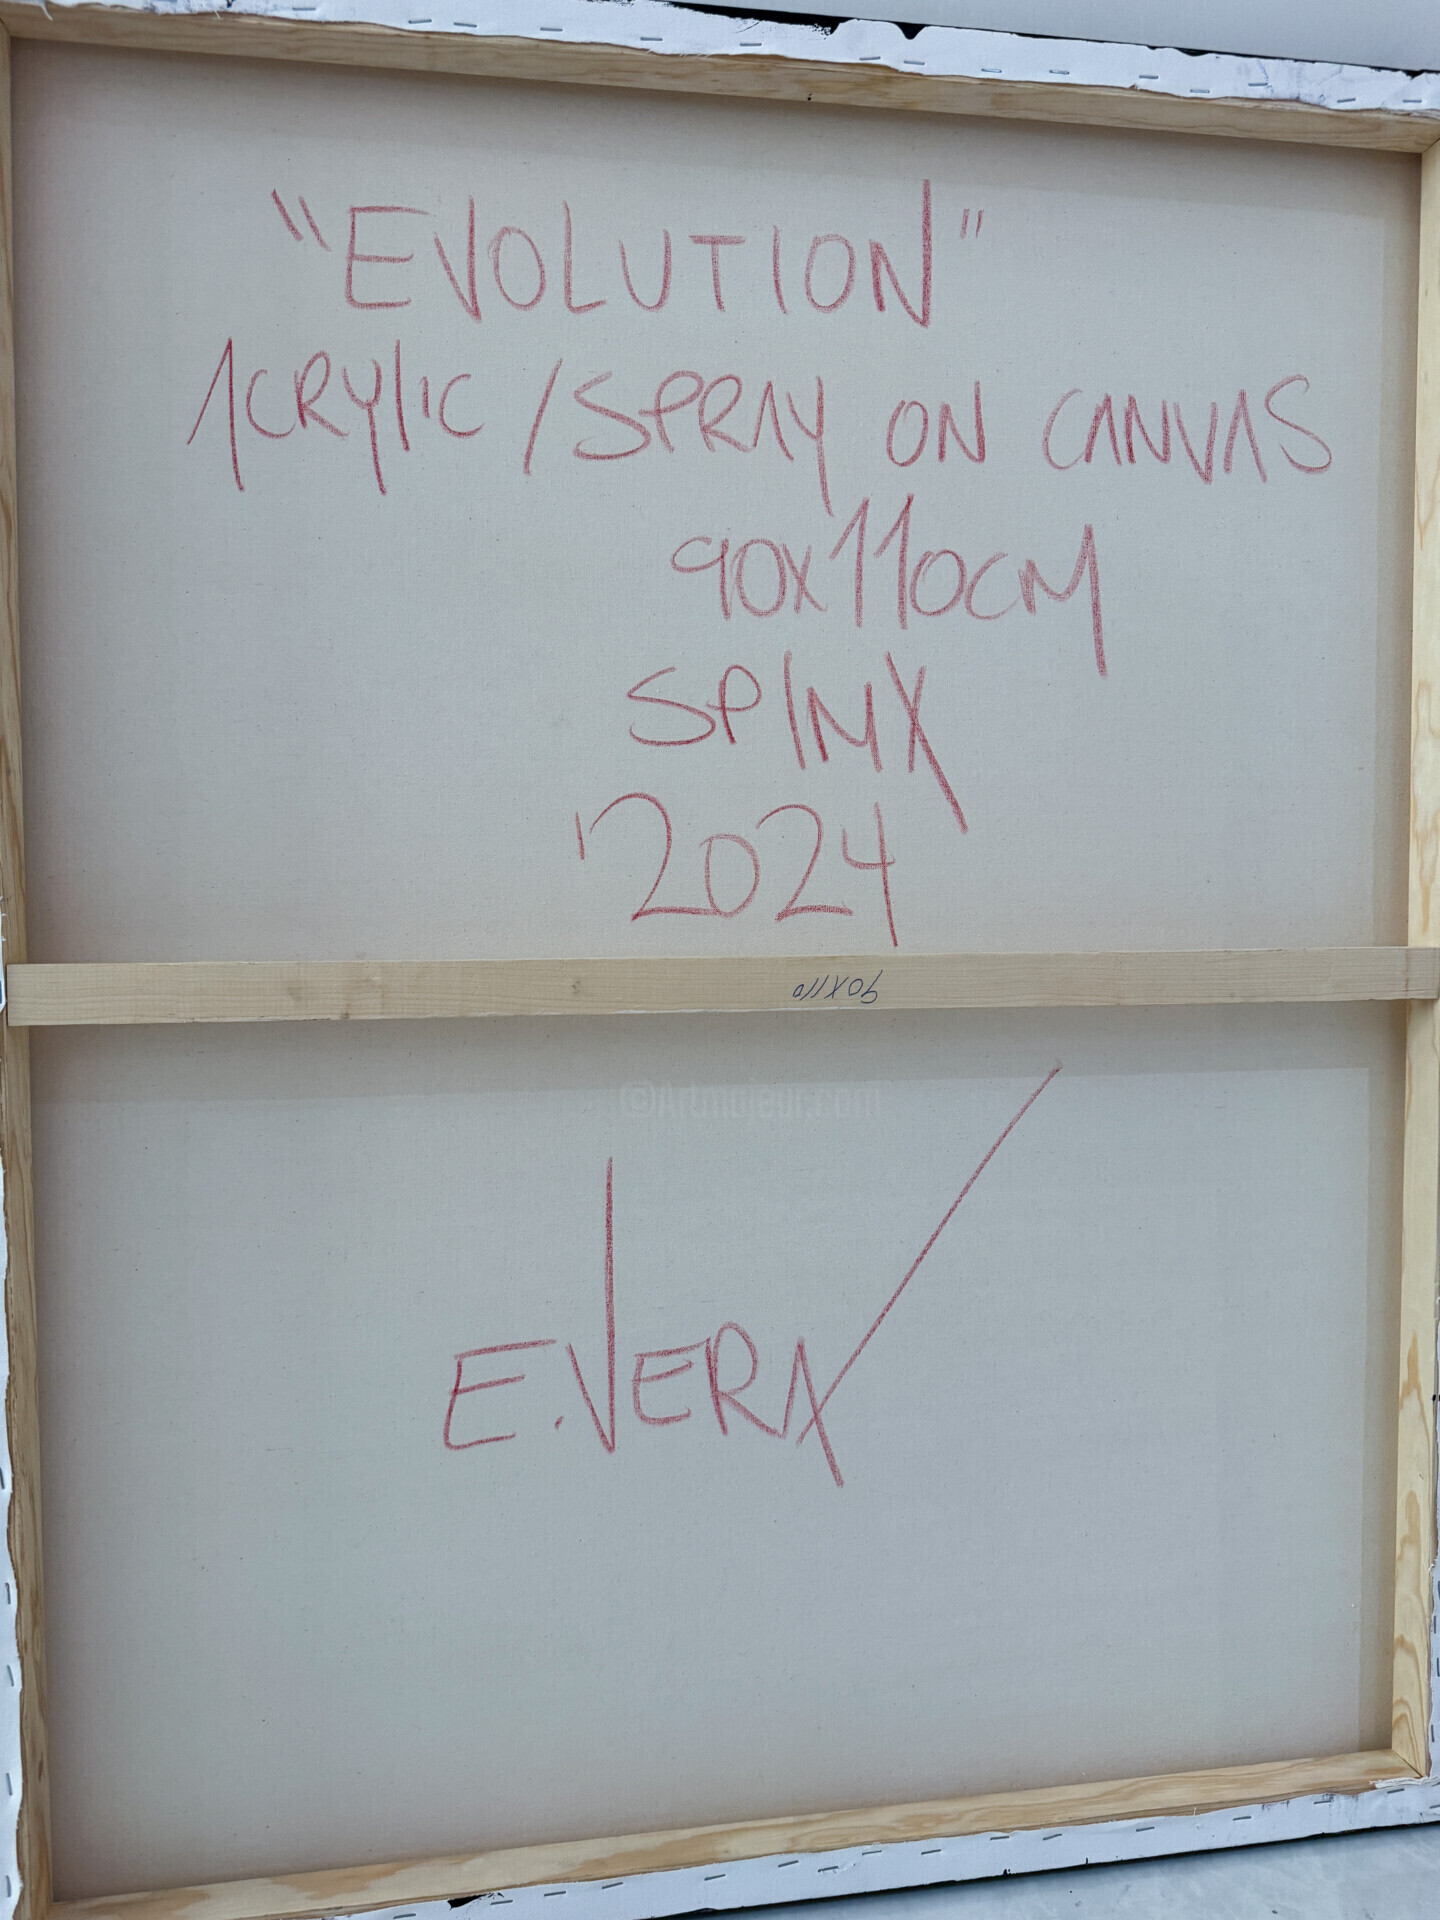 "EVOLUTION"
ACRYLIC / SPRAY ON CANVAS
90X110CM
SPINX
'2024
90X110
©Artmajeur.com
E.VERA